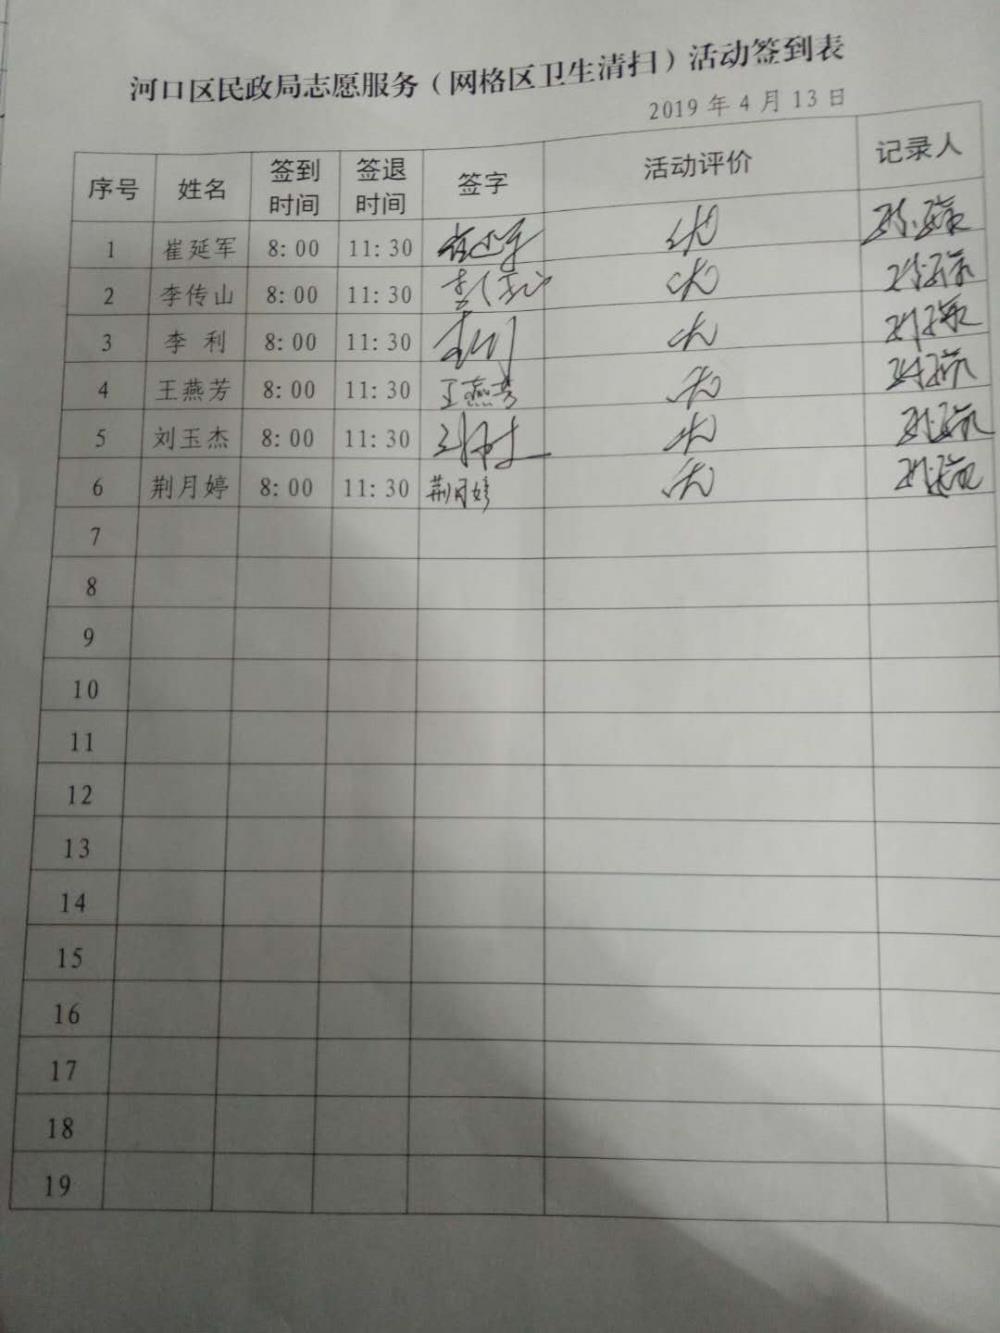 河口区民政局志愿服务（网格区卫生清扫）活动签到表
2019 年 4 月 13 日
序号 姓名 签到时间 签退时间 签字 活动评价 记录人
1 崔延军 8: 00 11: 30 崔延军 优
2 李传山 8: 00 11: 30 李传山 优
3 李 利 8: 00 11: 30 李利 优
4 王燕芳 8: 00 11: 30 王燕芳 优
5 刘玉杰 8: 00 11: 30 优
6 荆月婷 8: 00 11: 30 荆月婷 优
7
8
9
10
11
12
13
14
15
16
17
18
19